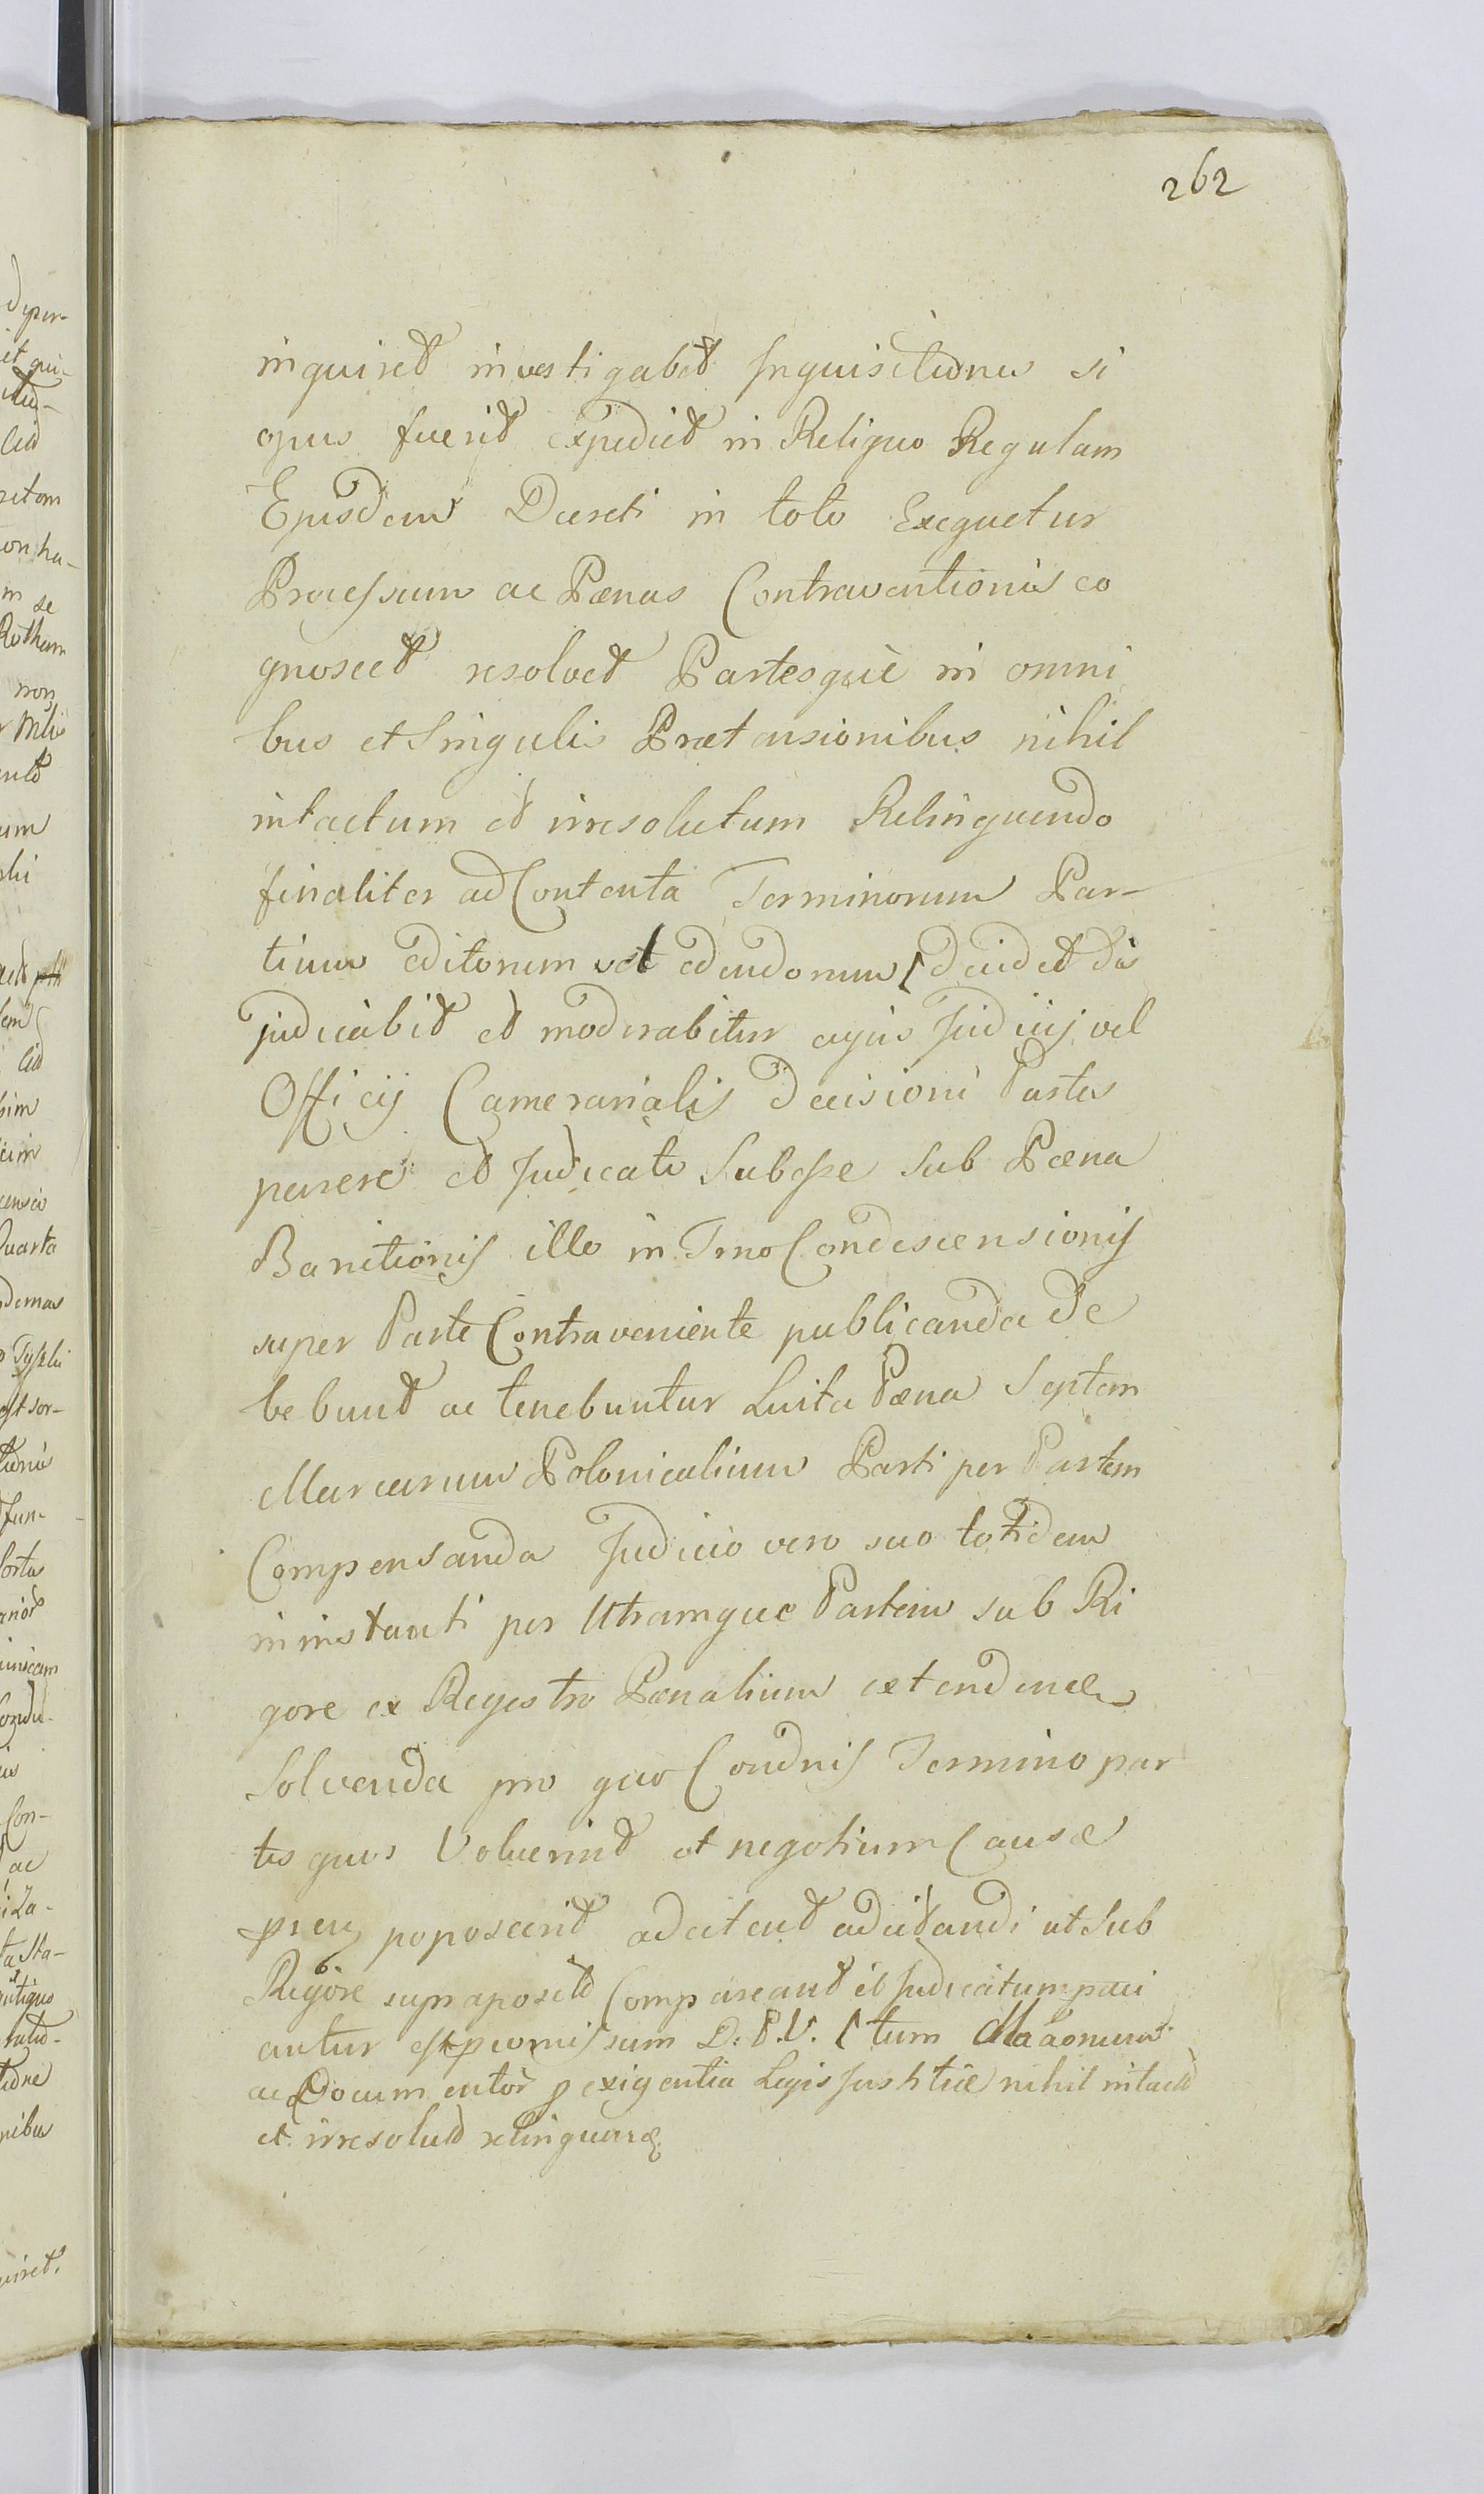 262
inquiret investigabit Inquisitiones si
opus fuerit expediet in Reliquo Regulam
Ejusdem Decreti in toto Exequetur
Processum ac Pœnas Contraventionis co
gnoscet resolvet Partesquè in omni
bus et Singulis Prætensionibus nihil
intactum et irresolutum Relinquendo
finaliter ad Contenta Terminorum Par-
tium editorum vel edendorum decidet dis
judicabit et moderabitur cujus Judicij vel
Officij Camerarialis Decisioni Partes
parere et Judicato Subesse sub Pœna
Banitionis illo in Tmo Condescensionis
super Parte Contraveniente publicanda de
bebunt ac tenebuntur Luita Pœna Septem
Marcarum Polonicalium Parti per Partem
Compensanda Judicio vero suo totidem
in instanti per Utramque Partem sub Ri
gore ex Regestro Pœnalium extenden
Solvenda pro quo Condnis Termino par
tes quos Voluerint et negotium Causæ
poposcerit adcitent adcitandi ut Sub
Rigore supraposito Compareant et Judicatum pati
antur D. P. V.
ac Documentor exigentia Legis Justitiæ nihil intacto
et irresoluto